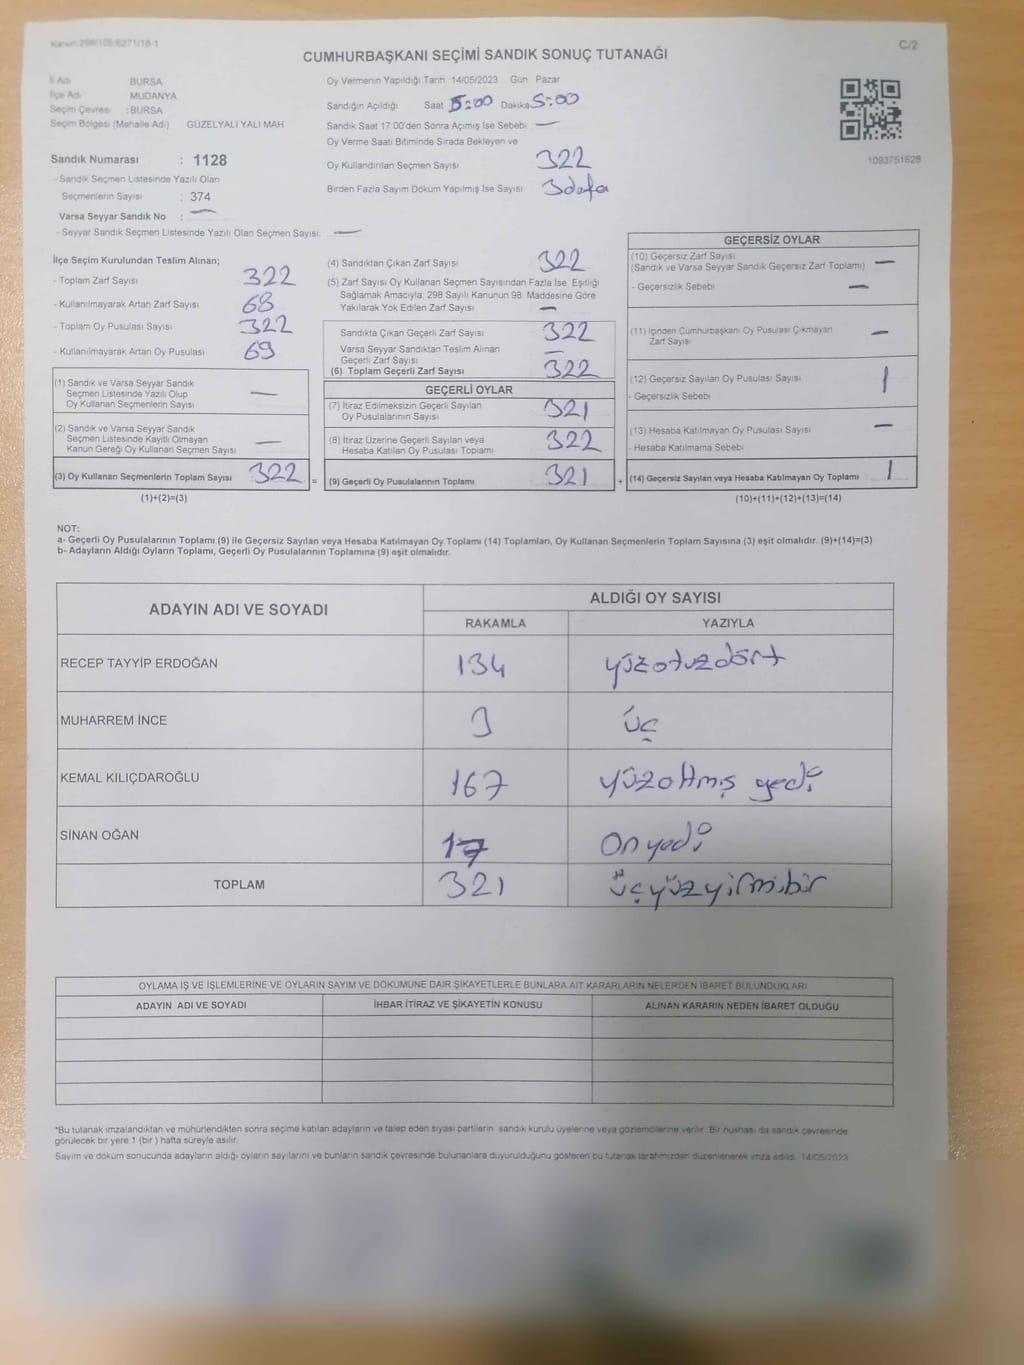 Kanun 298/105 6271/16-1
C/2
CUMHURBAŞKANI SEÇİMİ SANDIK SONUÇ TUTANAĞI
İl Adı BURSA
İlçe Adı MUDANYA
Seçim Çevresi : BURSA
Seçim Bölgesi (Mahalle Adı) GÜZELYALI YALI MAH
Sandık Numarası : 1128
- Sandık Seçmen Listesinde Yazılı Olan
Seçmenlerin Sayısı : 374
Varsa Seyyar Sandık No : —
- Seyyar Sandık Seçmen Listesinde Yazılı Olan Seçmen Sayısı: —
Oy Vermenin Yapıldığı Tarih 14/05/2023 Gün Pazar
Sandığın Açıldığı Saat 5:00 Dakika 5:00
Sandık Saat 17:00'den Sonra Açılmış İse Sebebi —
Oy Verme Saati Bitiminde Sırada Bekleyen ve
Oy Kullandırılan Seçmen Sayısı 322
Birden Fazla Sayım Döküm Yapılmış İse Sayısı 3 defa
1093751628
İlçe Seçim Kurulundan Teslim Alınan;
- Toplam Zarf Sayısı 322
- Kullanılmayarak Artan Zarf Sayısı 68
- Toplam Oy Pusulası Sayısı 322
- Kullanılmayarak Artan Oy Pusulası 69
(1) Sandık ve Varsa Seyyar Sandık
Seçmen Listesinde Yazılı Olup
Oy Kullanan Seçmenlerin Sayısı —
(2) Sandık ve Varsa Seyyar Sandık
Seçmen Listesinde Kayıtlı Olmayan
Kanun Gereği Oy Kullanan Seçmen Sayısı —
(3) Oy Kullanan Seçmenlerin Toplam Sayısı 322
(1)+(2)=(3)
(4) Sandıktan Çıkan Zarf Sayısı 322
(5) Zarf Sayısı Oy Kullanan Seçmen Sayısından Fazla İse, Eşitliği
Sağlamak Amacıyla; 298 Sayılı Kanunun 98. Maddesine Göre
Yakılarak Yok Edilen Zarf Sayısı —
Sandıkta Çıkan Geçerli Zarf Sayısı 322
Varsa Seyyar Sandıktan Teslim Alınan
Geçerli Zarf Sayısı —
(6) Toplam Geçerli Zarf Sayısı 322
GEÇERLİ OYLAR
(7) İtiraz Edilmeksizin Geçerli Sayılan
Oy Pusulalarının Sayısı 321
(8) İtiraz Üzerine Geçerli Sayılan veya
Hesaba Katılan Oy Pusulası Toplamı 322
= (9) Geçerli Oy Pusulalarının Toplamı : 321 +
GEÇERSİZ OYLAR
(10) Geçersiz Zarf Sayısı
(Sandık ve Varsa Seyyar Sandık Geçersiz Zarf Toplamı) —
- Geçersizlik Sebebi —
(11) İçinden Cumhurbaşkanı Oy Pusulası Çıkmayan
Zarf Sayısı —
(12) Geçersiz Sayılan Oy Pusulası Sayısı 1
- Geçersizlik Sebebi
(13) Hesaba Katılmayan Oy Pusulası Sayısı —
- Hesaba Katılmama Sebebi
(14) Geçersiz Sayılan veya Hesaba Katılmayan Oy Toplamı 1
(10)+(11)+(12)+(13)=(14)
NOT:
a- Geçerli Oy Pusulalarının Toplamı (9) ile Geçersiz Sayılan veya Hesaba Katılmayan Oy Toplamı (14) Toplamları, Oy Kullanan Seçmenlerin Toplam Sayısına (3) eşit olmalıdır. (9)+(14)=(3)
b- Adayların Aldığı Oyların Toplamı, Geçerli Oy Pusulalarının Toplamına (9) eşit olmalıdır.
ADAYIN ADI VE SOYADI ALDIĞI OY SAYISI
RAKAMLA YAZIYLA
RECEP TAYYİP ERDOĞAN 134 yüzotuzdört
MUHARREM İNCE 3 üç
KEMAL KILIÇDAROĞLU 167 yüzaltmış yedi
SİNAN OĞAN 17 On yedi
TOPLAM 321 üçyüzyirmibir
OYLAMA İŞ VE İŞLEMLERİNE VE OYLARIN SAYIM VE DÖKÜMÜNE DAİR ŞİKAYETLERLE BUNLARA AİT KARARLARIN NELERDEN İBARET BULUNDUKLARI
ADAYIN ADI VE SOYADI İHBAR İTİRAZ VE ŞİKAYETİN KONUSU ALINAN KARARIN NEDEN İBARET OLDUĞU
*Bu tutanak imzalandıktan ve mühürlendikten sonra seçime katılan adayların ve talep eden siyasi partilerin sandık kurulu üyelerine veya gözlemcilerine verilir. Bir nüshası da sandık çevresinde
görülecek bir yere 1 (bir) hafta süreyle asılır.
Sayım ve döküm sonucunda adayların aldığı oyların sayılarını ve bunların sandık çevresinde bulunanlara duyurulduğunu gösteren bu tutanak tarafımızdan düzenlenerek imza edildi. 14/05/2023